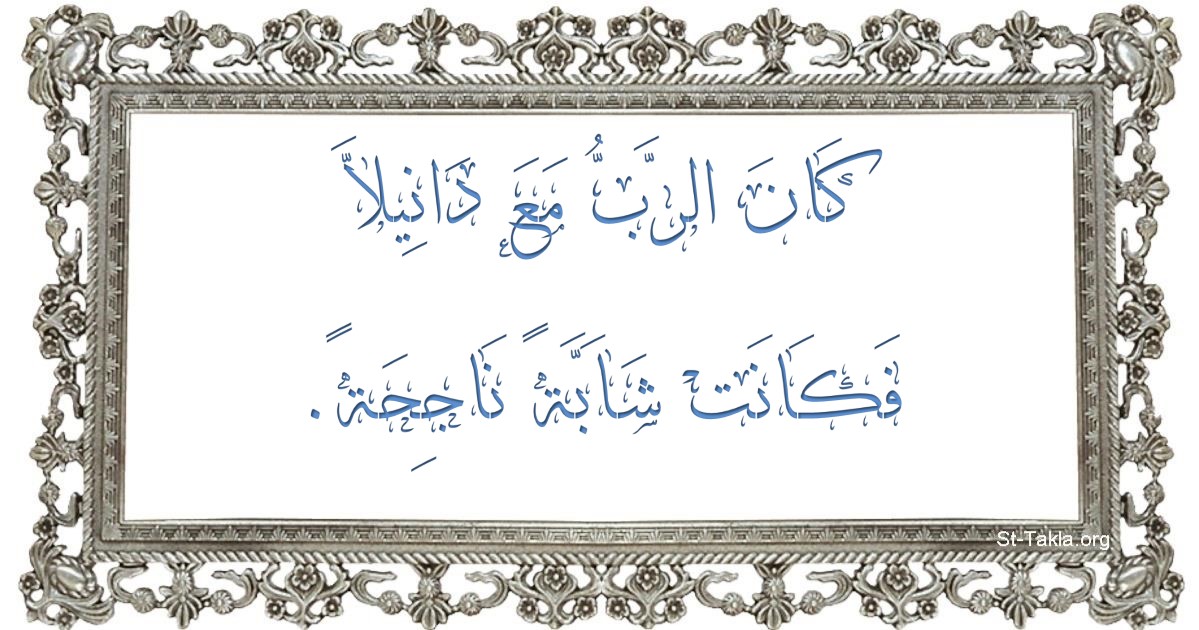 كَانَ الرَّبُّ مَعَ دَانِيلاَّ
فَكَانَتْ شَابَّةً نَاجِحَةً.
St-Takla.org